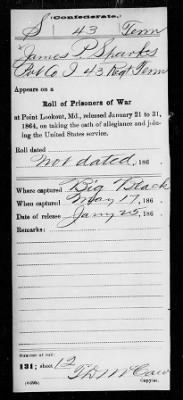 (Confederate.)
S | 43 | Tenn
James P. Sparks
Pvt Co I 43 Regt Tenn
Appears on a
Roll of Prisoners of War
at Point Lookout, Md., released January 21 to 31,
1864, on taking the oath of allegiance and join-
ing the United States service.
Roll dated
Not dated, 186 .
Where captured Big Black
When captured May 17, 186 .
Date of release Jany 25, 186 .
Remarks:
Number of roll:
131; sheet 12
T. D. McCaw
Copyist.